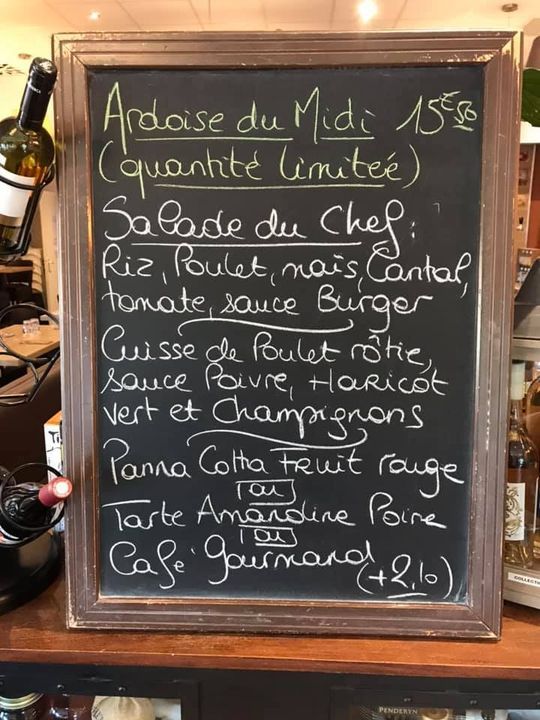 Ardoise du Midi 15€50
(quantité limitée)
Salade du Chef :
Riz, Poulet, maïs, Cantal,
tomate, sauce Burger
Cuisse de Poulet rôtie,
sauce Poivre, Haricot
vert et Champignons
Panna Cotta Fruit rouge
ou
Tarte Amandine Poire
ou
Café Gourmand
(+2,10)
COLLECTI
PENDERYN